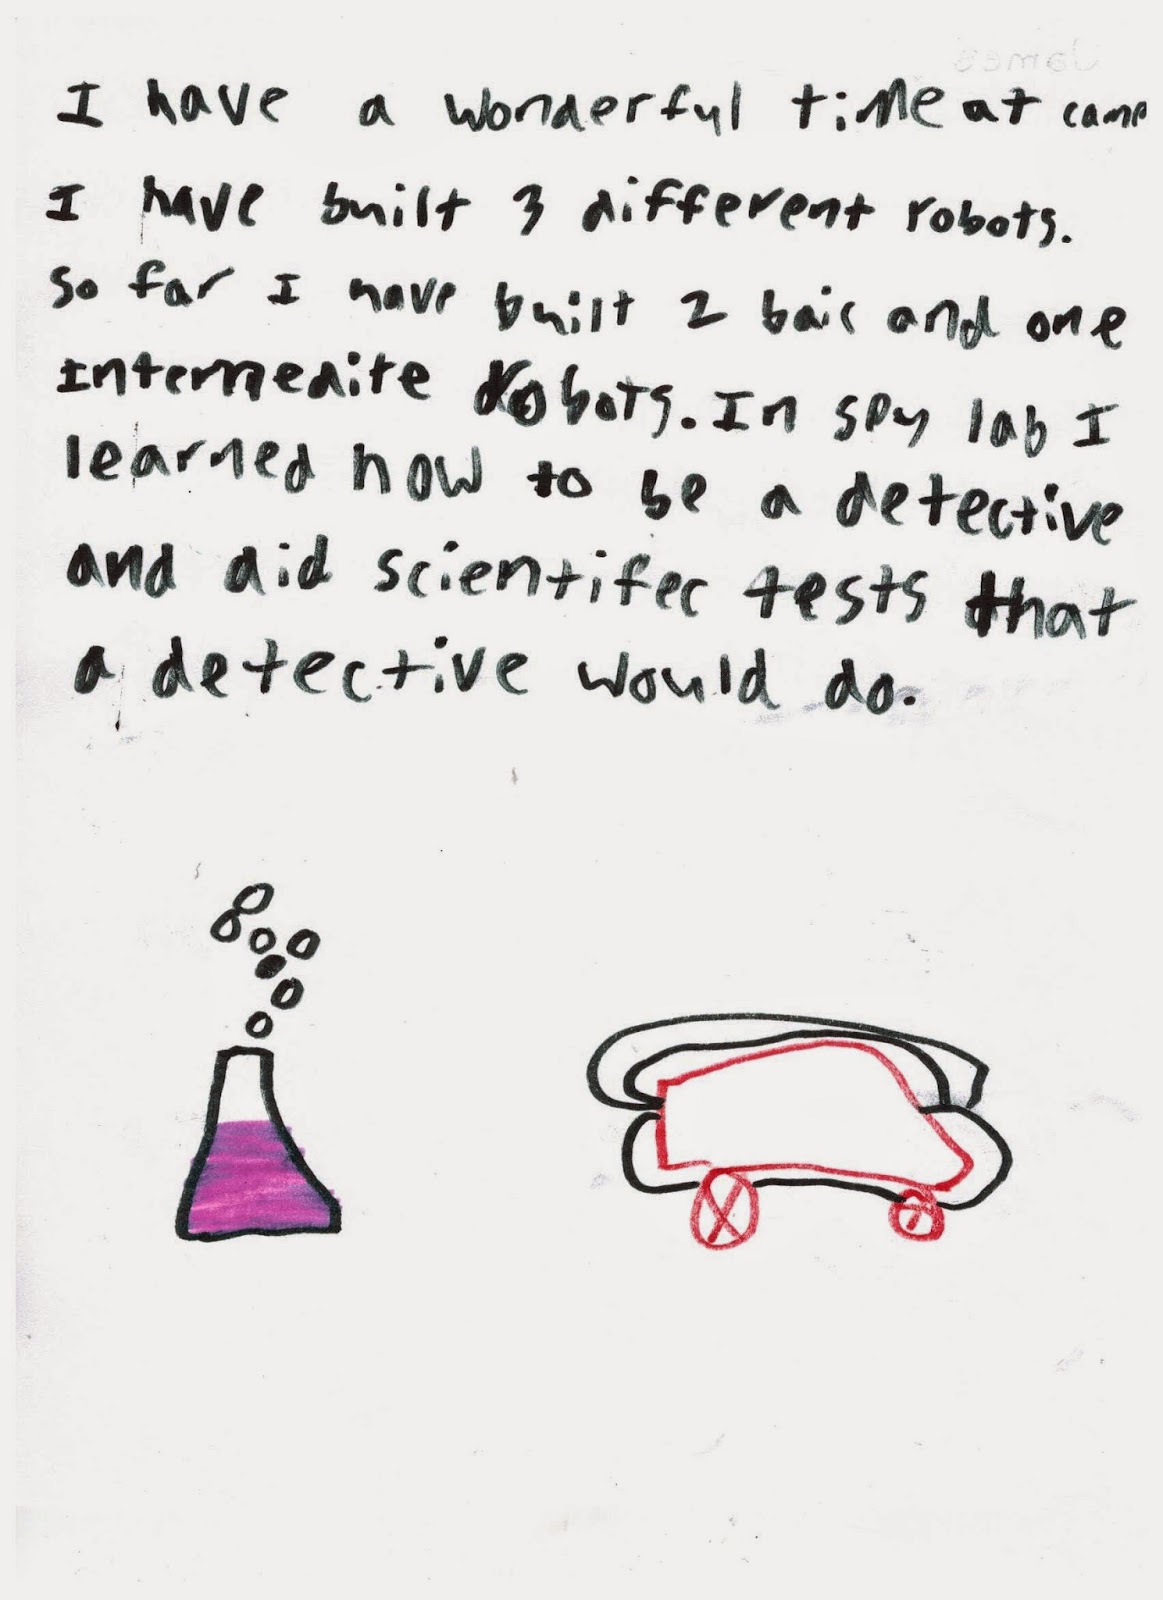 James
I have a wonderful time at camp
I have built 3 different robots.
So far I have built 2 baic and one
Intermedite robots. In spy lab I
learned how to be a detective
and did scientifec tests that
a detective would do.